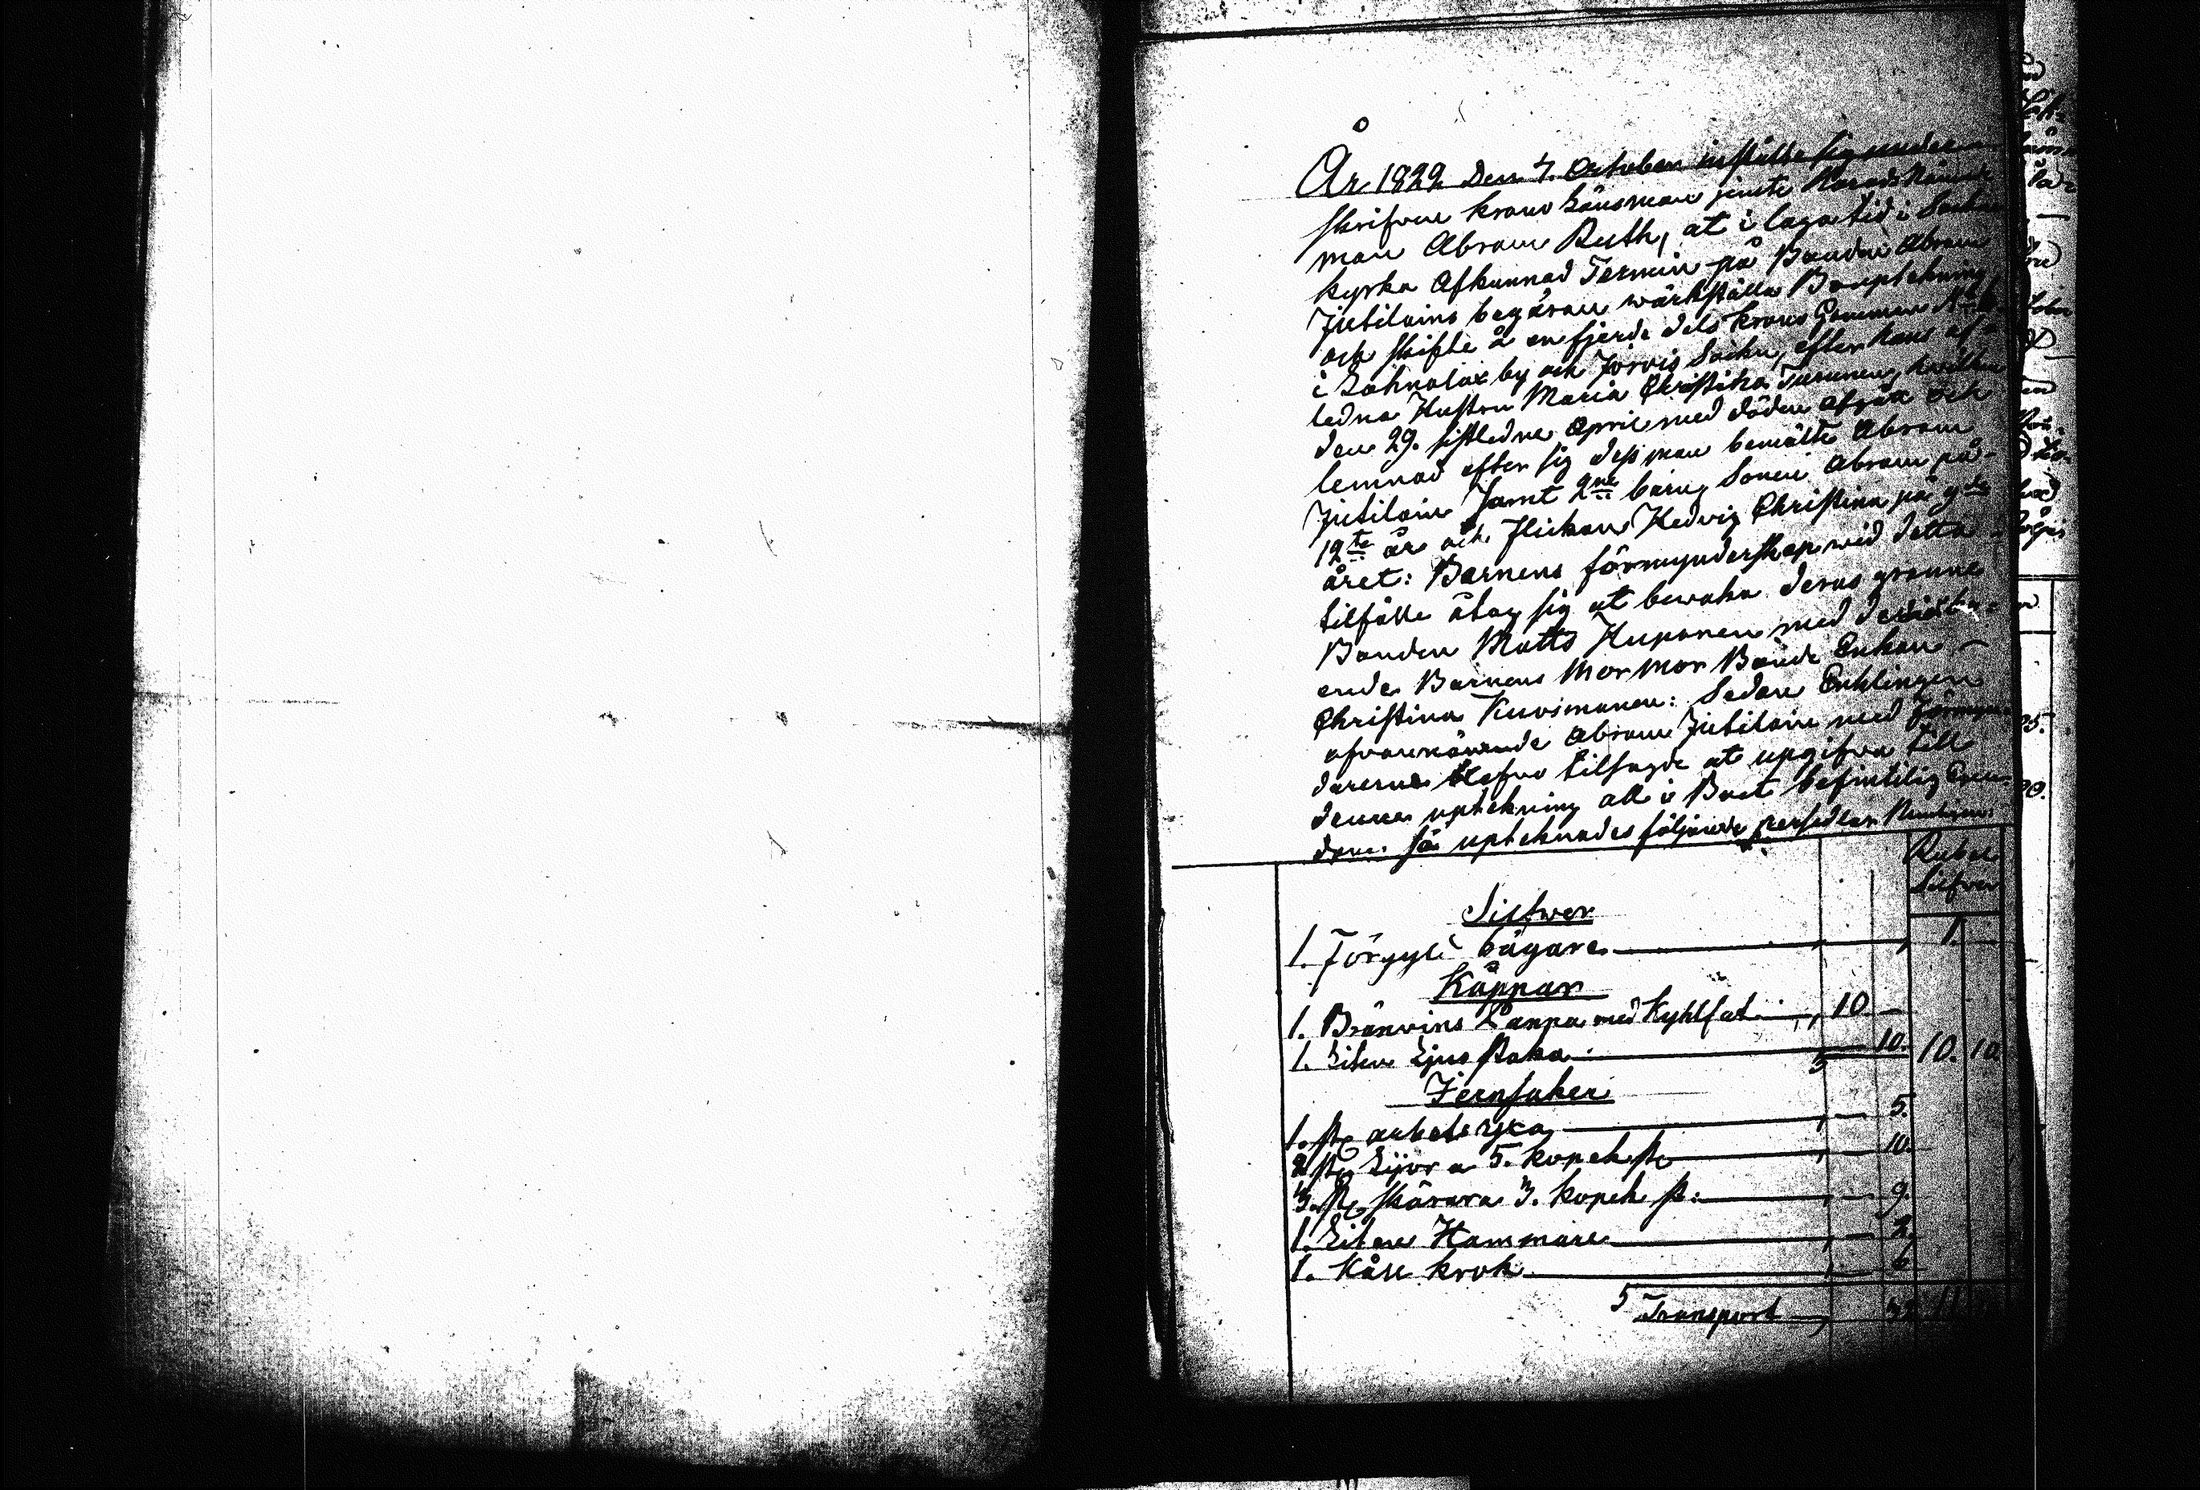 År 1822 den 7. October instälte sig under
skrifven krono Länsman jemte Härads Nämde
man Abram Ruth, at i laga tid i Sochne
kyrka Afkunnad Termin på Bonden Abram
Jutilains begäran wärkställa Bouptekning
och skifte å en fjerde dels Krono Hemman N:o
i Lohnalax by och Jorois Sockn, efter hans af
ledna Hustru Maria Christina Turunen, hvilken
den 29. sistledne April med döden afgått och
lemnad efter sig dess man bemälte Abram
Jutilain samt 2ne barn, Sonen Abram på
12te år och Flickan Hedvig Christina på 9de
året: Barnens förmynderskap wid detta
tilfälle åtog sig at bewaka deras granne
Bonden Matts Huponen med
ende Barnens Mor Mor Bonde Enkan
Christina Kuosmanen: Sedan Enklingen
ofvannämnde Abram Jutilain med Förmyn
darerne blefvo tilsagde at upgifva till
denna uptekning all i Boet befintelig Egen
dom. så upteknades följande persedlar Nemligen:
Rubel
Silfver
Silfwer
1. Förgylt bägare 1.
Koppar
1. Bränvins Panna med Kyhlfat 10 —
1. Liten Ljus staka 10. 10. 10
Jernsaker
1. st arbets yxa — 5.
2 st Lijor a 5. kopek st — 10.
3. st skäror a 3. kopek st: — 9.
1. Liten Hammare — 2.
1. Kåse krok 6
Transport